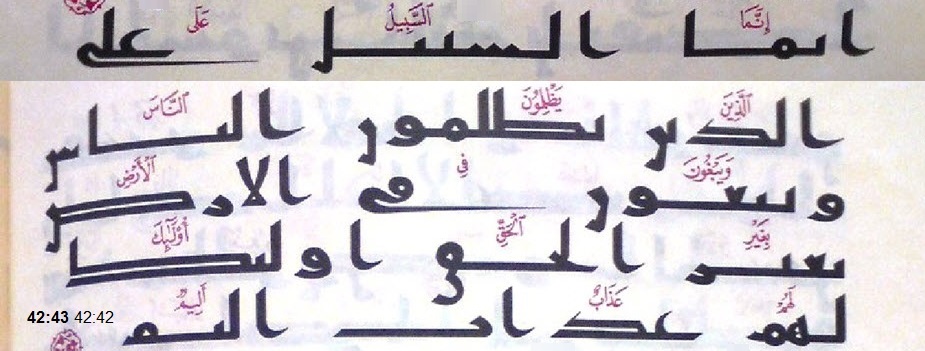 إِنَّمَا السَّبِيلُ عَلَى
انما السبيل على
الَّذِينَ يَظْلِمُونَ النَّاسَ
الذين يظلمون الناس
وَيَبْغُونَ فِي الْأَرْضِ
ويبغون في الارض
بِغَيْرِ الْحَقِّ أُولَٰئِكَ
بغير الحق اوليك
لَهُمْ عَذَابٌ أَلِيمٌ
لهم عذاب اليم
42:43 42:42